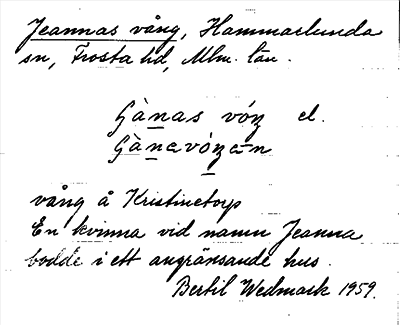 Jeannas vång, Hammarlunda
sn, Frosta hd, Mlm. län.
Gànas vóŋ el.
Gànavóŋən
vång å Kristinetorp
En kvinna vid namn Jeanna
bodde i ett angränsande hus.
Bertil Wedmark 1959.